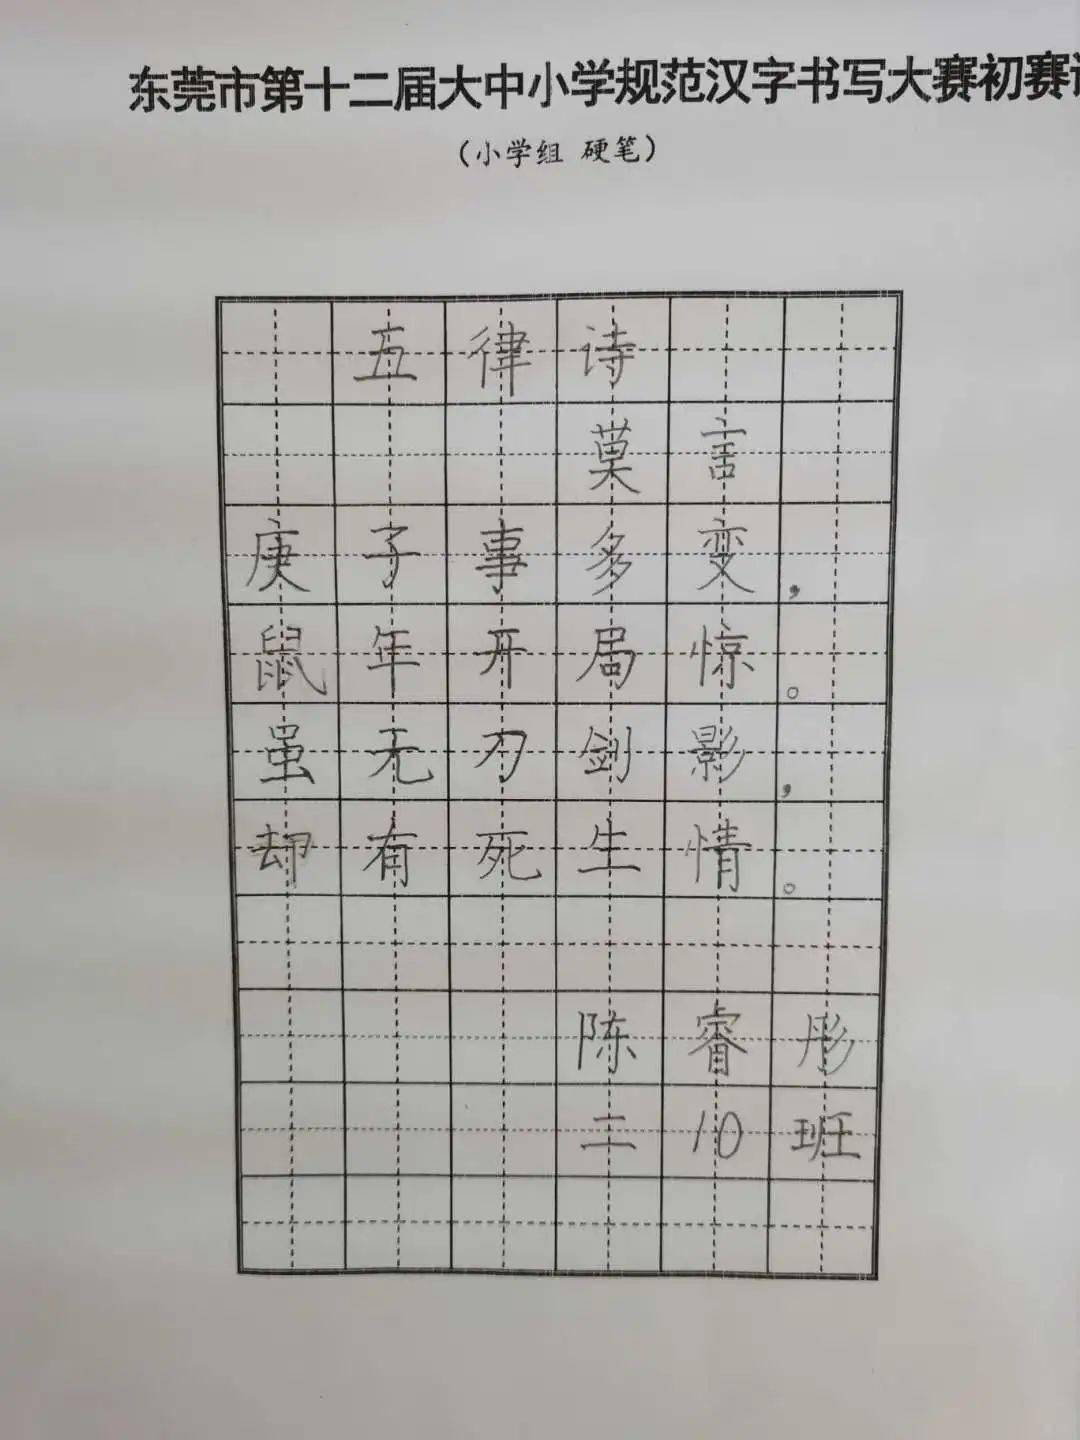 东莞市第十二届大中小学规范汉字书写大赛初赛
（小学组 硬笔）
五律诗
莫言
庚子事多变，
鼠年开局惊。
虽无刀剑影，
却有死生情。
陈睿彤
二10班